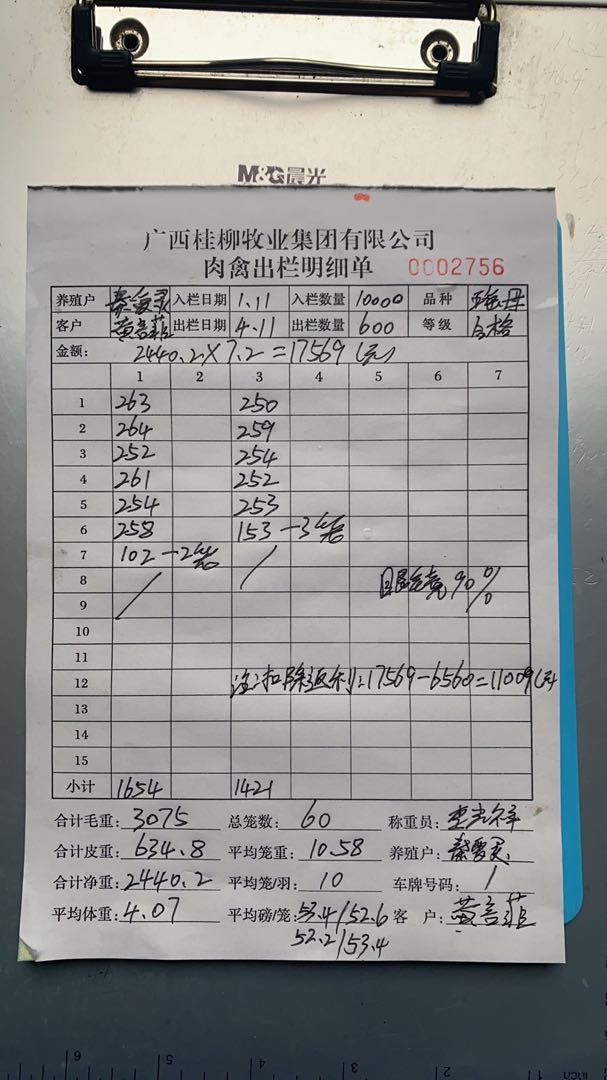 M&G晨光
广西桂柳牧业集团有限公司
肉禽出栏明细单 0002756
养殖户 入栏日期 1.11 入栏数量 10000 品种
客户 出栏日期 4.11 出栏数量 600 等级 合格
金额: 2440.2×7.2=17569(元)
1 2 3 4 5 6 7
1 263 250
2 264 259
3 252 254
4 261 252
5 254 253
6 258 153-3笼
7 102-2笼
8 眼镜90%
9
10
11
12 注:扣除返利:17569-6560=11009(元)
13
14
15
小计 1654 1421
合计毛重: 3075 总笼数: 60 称重员:
合计皮重: 634.8 平均笼重: 10.58 养殖户:
合计净重: 2440.2 平均笼/羽: 10 车牌号码: /
平均体重: 4.07 平均磅/笼: 53.4/52.6 客 户:
52.2/53.4
6 5 4 3 2 1 inch